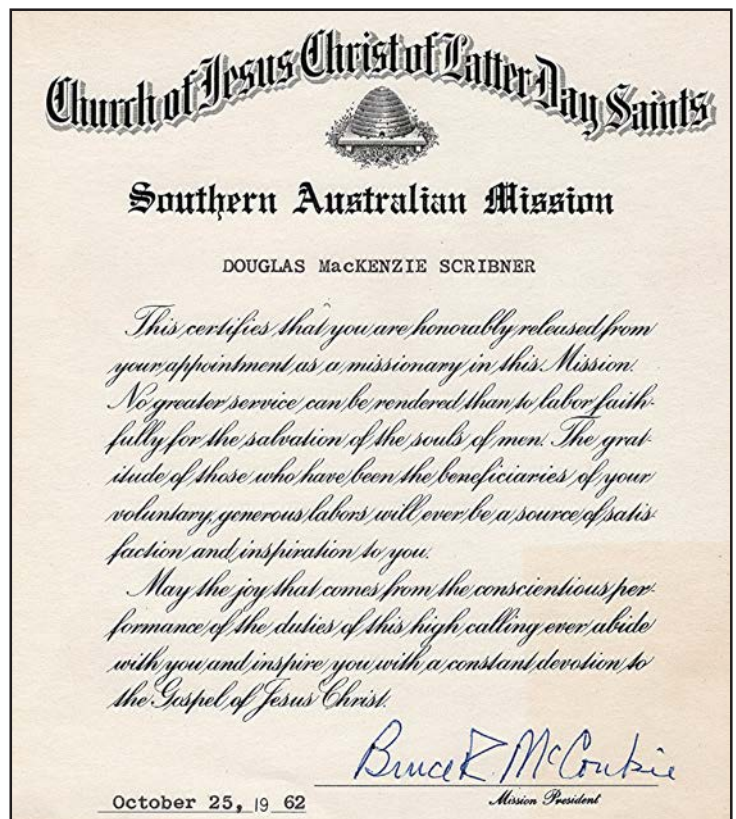 Church of Jesus Christ of Latter Day Saints
Southern Australian Mission
DOUGLAS MacKENZIE SCRIBNER
This certifies that you are honorably released from
your appointment as a missionary in this Mission.
No greater service can be rendered than to labor faith-
fully for the salvation of the souls of men. The grat-
itude of those who have been the beneficiaries of your
voluntary, generous labors will ever be a source of satis-
faction and inspiration to you.
May the joy that comes from the conscientious per-
formance of the duties of this high calling ever abide
with you and inspire you with a constant devotion to
the Gospel of Jesus Christ.
Bruce R. McConkie
October 25, 19 62
Mission President